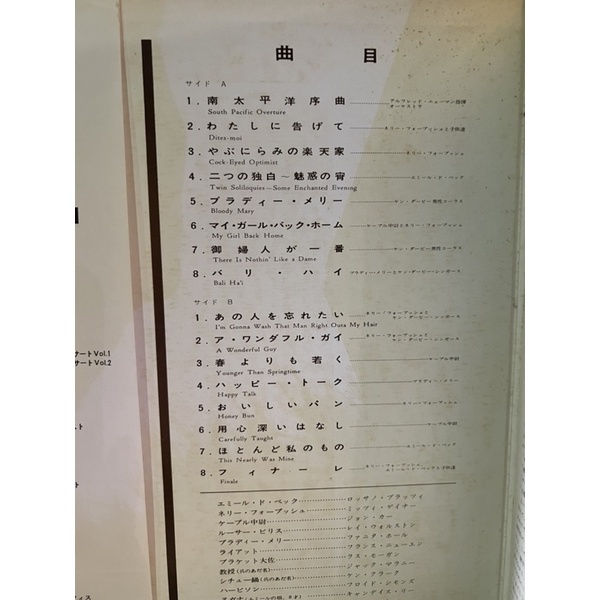 曲目
サイド A
1. 南太平洋序曲 アルフレッド・ニューマン指揮 オーケストラ
South Pacific Overture
2. わたしに告げて ネリー・フォーブッシュと子供達
Dites-moi
3. やぶにらみの楽天家 ネリー・フォーブッシュ
Cock-Eyed Optimist
4. 二つの独白〜魅惑の宵 エミール・ド・ベック
Twin Soliloquies—Some Enchanted Evening
5. ブラディー・メリー ケン・ダービー男性コーラス
Bloody Mary
6. マイ・ガール・バック・ホーム ケーブル中尉とネリー・フォーブッシュ
My Girl Back Home
7. 御婦人が一番 ケン・ダービー男性コーラス
There Is Nothin' Like a Dame
8. バリ・ハイ ブラディー・メリーとケン・ダービー・シンガース
Bali Ha'i
サイド B
1. あの人を忘れたい ネリー・フォーブッシュと ケン・ダービー・シンガース
I'm Gonna Wash That Man Right Outa My Hair
2. ア・ワンダフル・ガイ ネリー・フォーブッシュと ケン・ダービー・シンガース
A Wonderful Guy
3. 春よりも若く ケーブル中尉
Younger Than Springtime
4. ハッピー・トーク ブラディー・メリー
Happy Talk
5. おいしいパン ネリー・フォーブッシュ
Honey Bun
6. 用心深いはなし ケーブル中尉
Carefully Taught
7. ほとんど私のもの エミール・ド・ベック
This Nearly Was Mine
8. フィナーレ ネリー・フォーブッシュ, エミール・ド・ベックと子供達
Finale
エミール・ド・ベック ロッサノ・ブラッツィ
ネリー・フォーブッシュ ミッツィ・ゲイナー
ケーブル中尉 ジョン・カー
ルーサー・ビリス レイ・ウォルストン
ブラディー・メリー ファニタ・ホール
ライアット フランス・ニューエン
ブラケット大佐 ラス・モーガン
教授(兵のあだ名) ジャック・マラニー
シチュー鍋(兵のあだ名) ケン・クラーク
ハービソン フロイド・シモンズ
キャンデイス・リー
サートVol.1
サートVol.2
スト
ト
フィス